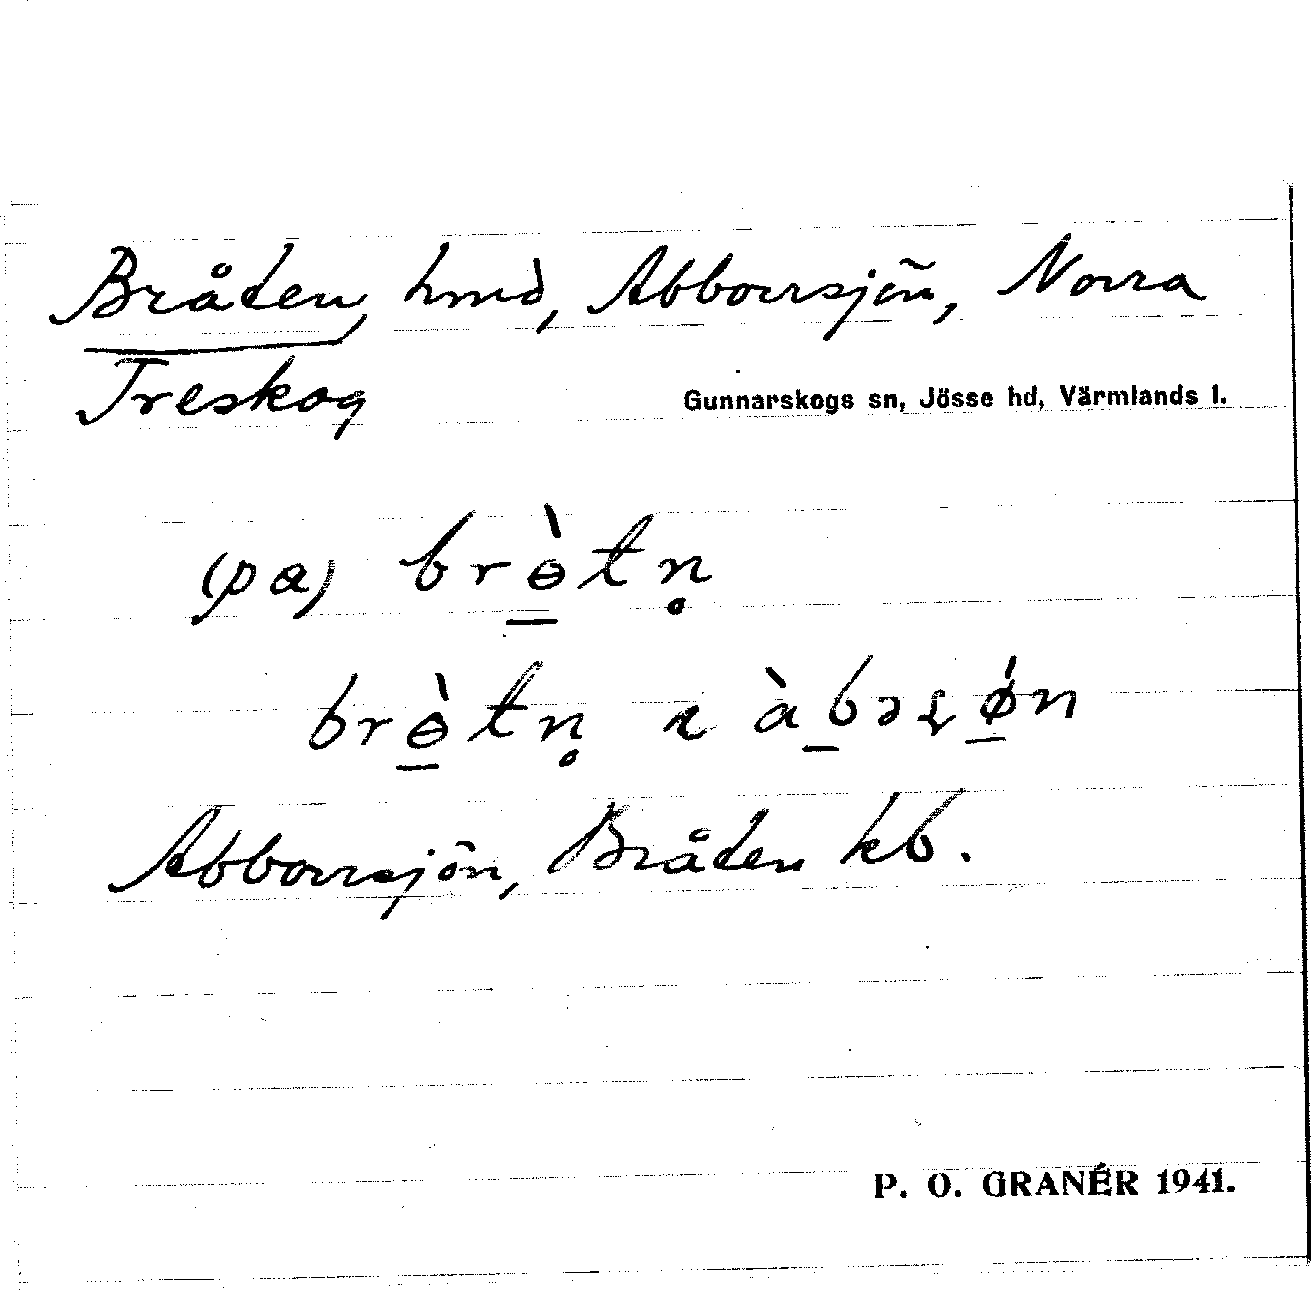 Bråten, hmd, Abborrsjön, Norra
Treskog
Gunnarskogs sn, Jösse hd, Värmlands l.
(pa) brɵ̠̀tn̥
brɵ̠̀tn̥ ɩ àb̠əʂǿ̠n
Abborrsjön, Bråten kb.
P. O. GRANÉR 1941.